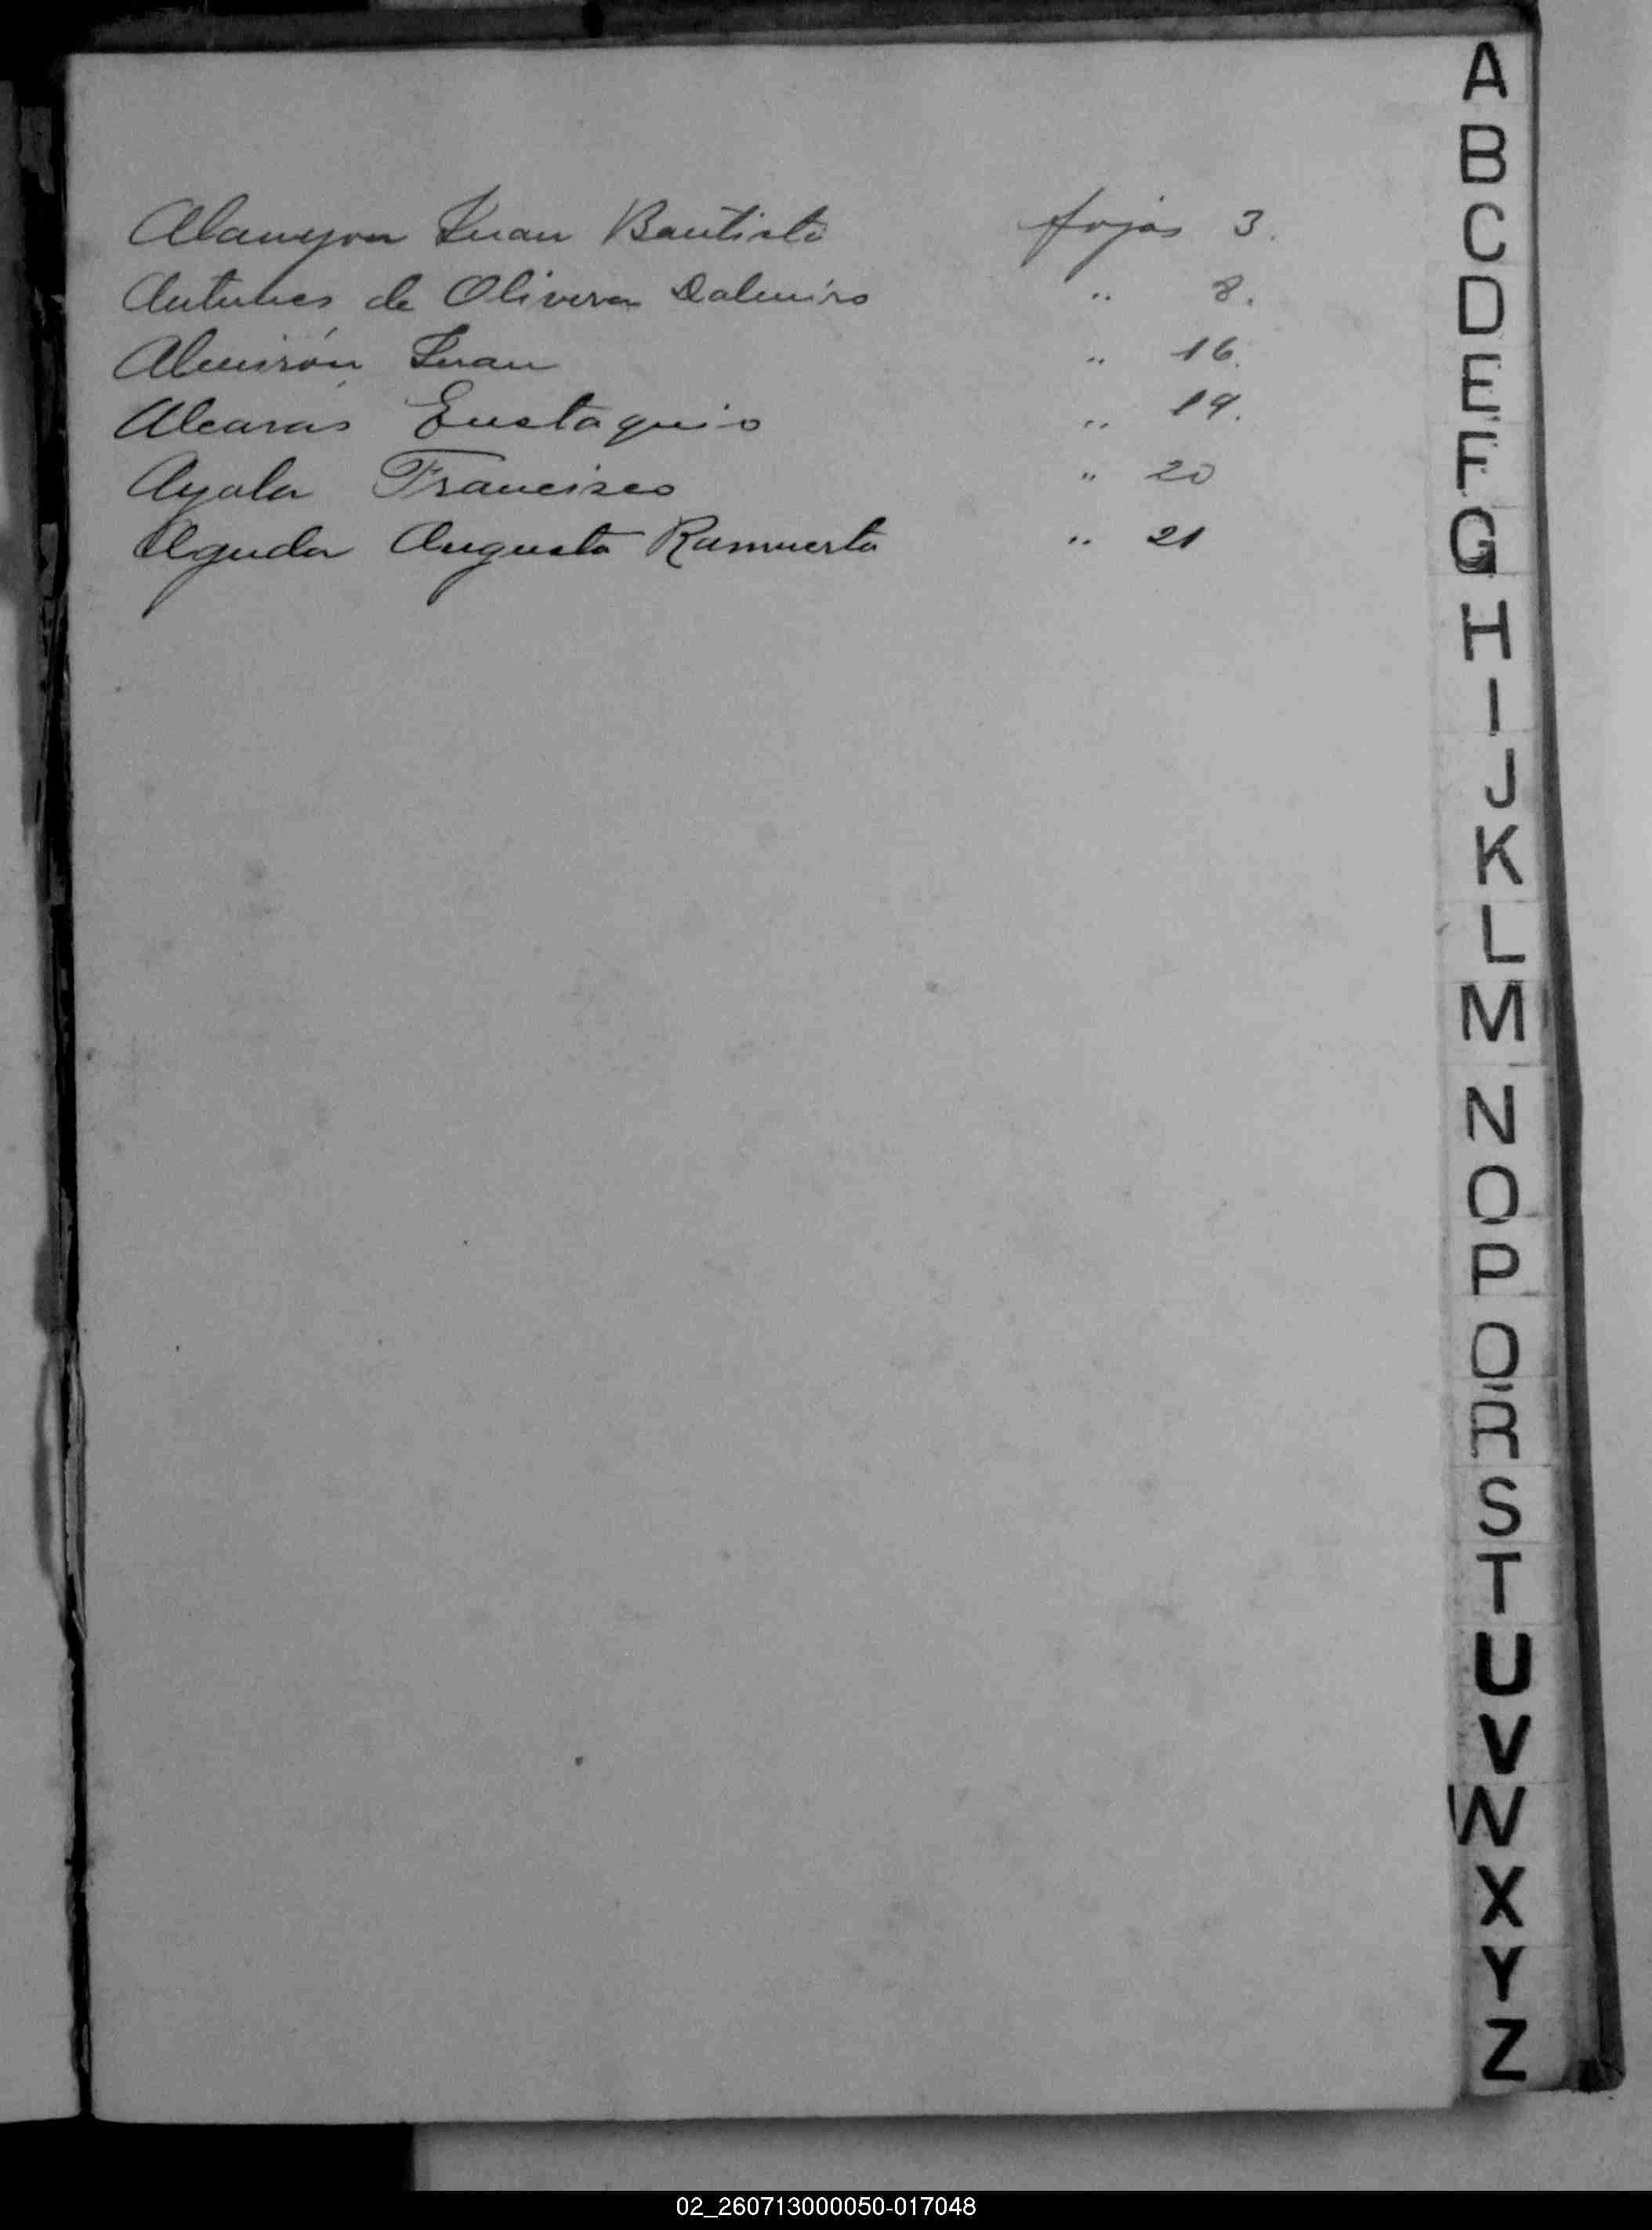 Juan Bautista fojas 3.
Antunes de Olivera Dalmiro " 8.
Almirón Juan " 16.
Alcarás Eustaquio " 19.
Ayala Francisco " 20
Aguda Augusta " 21
A
B
C
D
E
F
G
H
I
J
K
L
M
N
O
P
Q
R
S
T
U
V
W
X
Y
Z
02_260713000050-017048